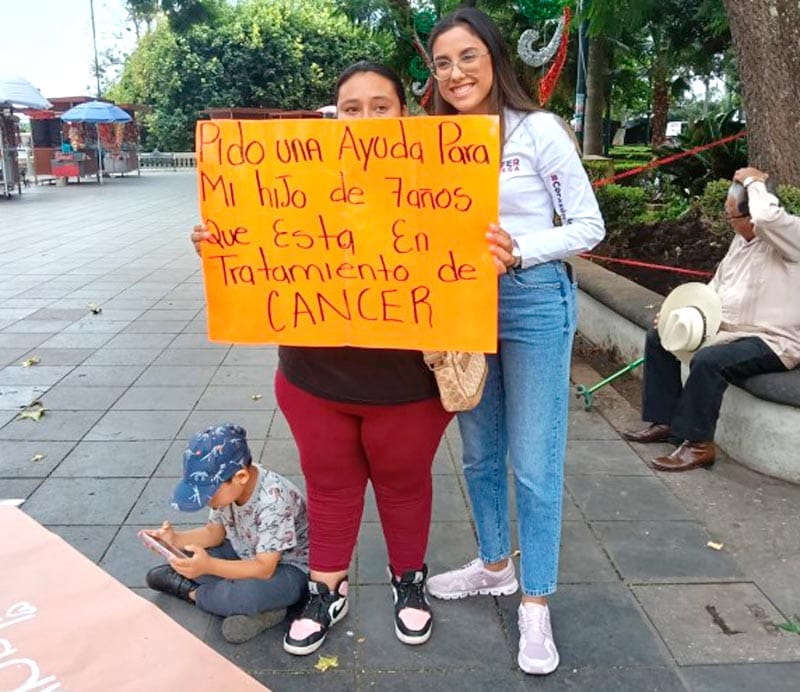 Pido UNA Ayuda Para
Mi hiJo de 7años
Que Esta En
Tratamiento de
CANCER